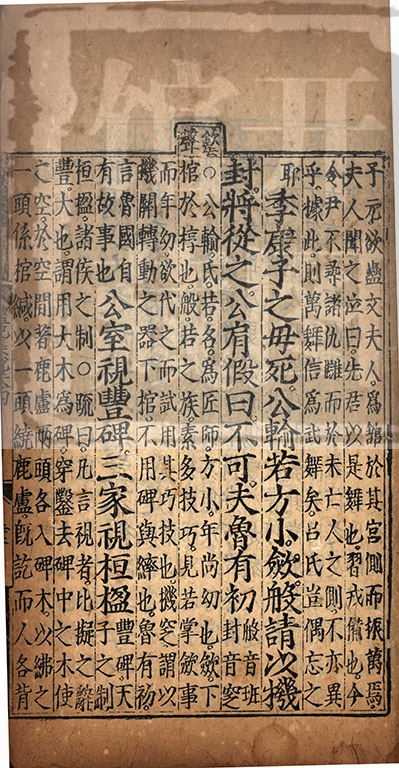 子元欲蠱文夫人。為館於其宮側而振萬焉
夫人聞之泣曰。先君以是舞也。習戎備也。今
令尹不尋諸仇讎而於未亡人之側。不亦異
乎。據此則萬舞信為武舞矣。呂氏豈偶忘之
耶 季康子之母死。公輸若方小。斂。般請以機
封。將從之。公肩假曰。不可。夫魯有初 般音班封音窆
斂聲
○公輸。氏。若。名。為匠師。方小。年尚幼也。斂。下
棺於椁也。般。若之族。素多技巧。見若掌斂事
而年幼。欲代之而試用其巧技也。機窆。謂以
機關轉動之器下棺。不用碑與繂也。魯有初
言魯國自有故事也 公室視豐碑。三家視桓楹 豐碑。天子之制
桓楹。諸侯之制○疏曰。凡言視者。比擬之辭
豐大也。謂用大木為碑。穿鑿去碑中之木。使
之空。於空間著鹿盧。兩頭各入碑木。以紼之
一頭係棺緘。以一頭繞鹿盧。既訖而人各背